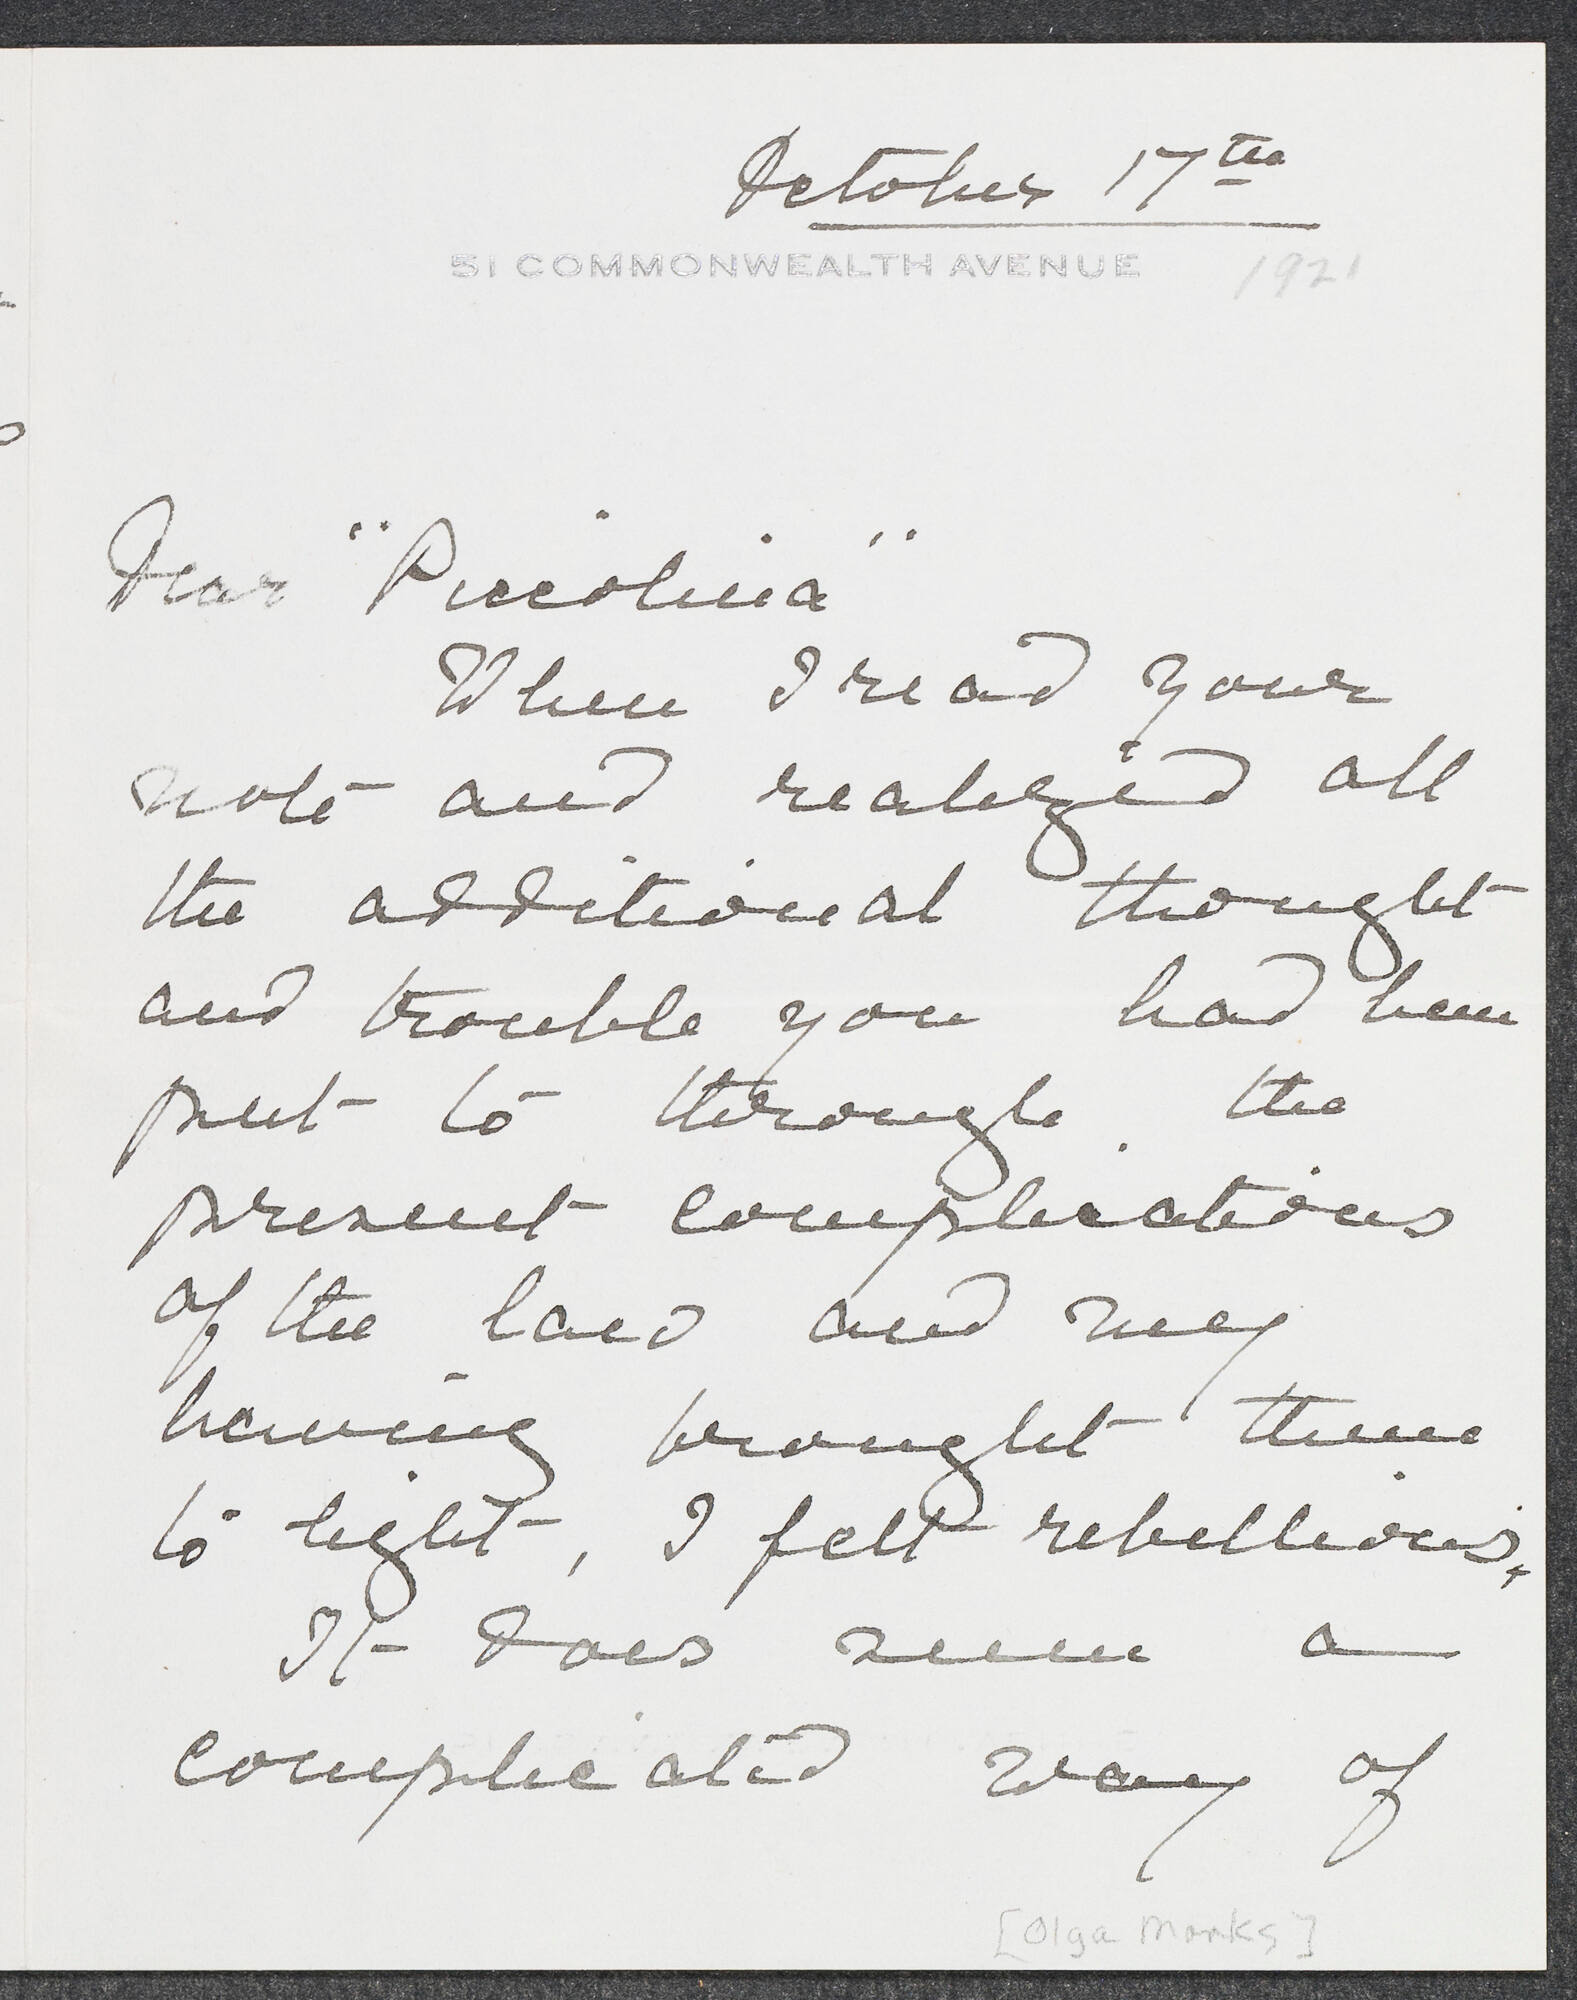 October 17th
51 COMMONWEALTH AVENUE 1921
Dear "Piccolina"
When I read your
note and realized all
the additional thought
and trouble you had been
put to through the
present complications
of the law and my
having brought them
to light, I felt rebellious.
It does seem a
complicated way of
[Olga Monks]